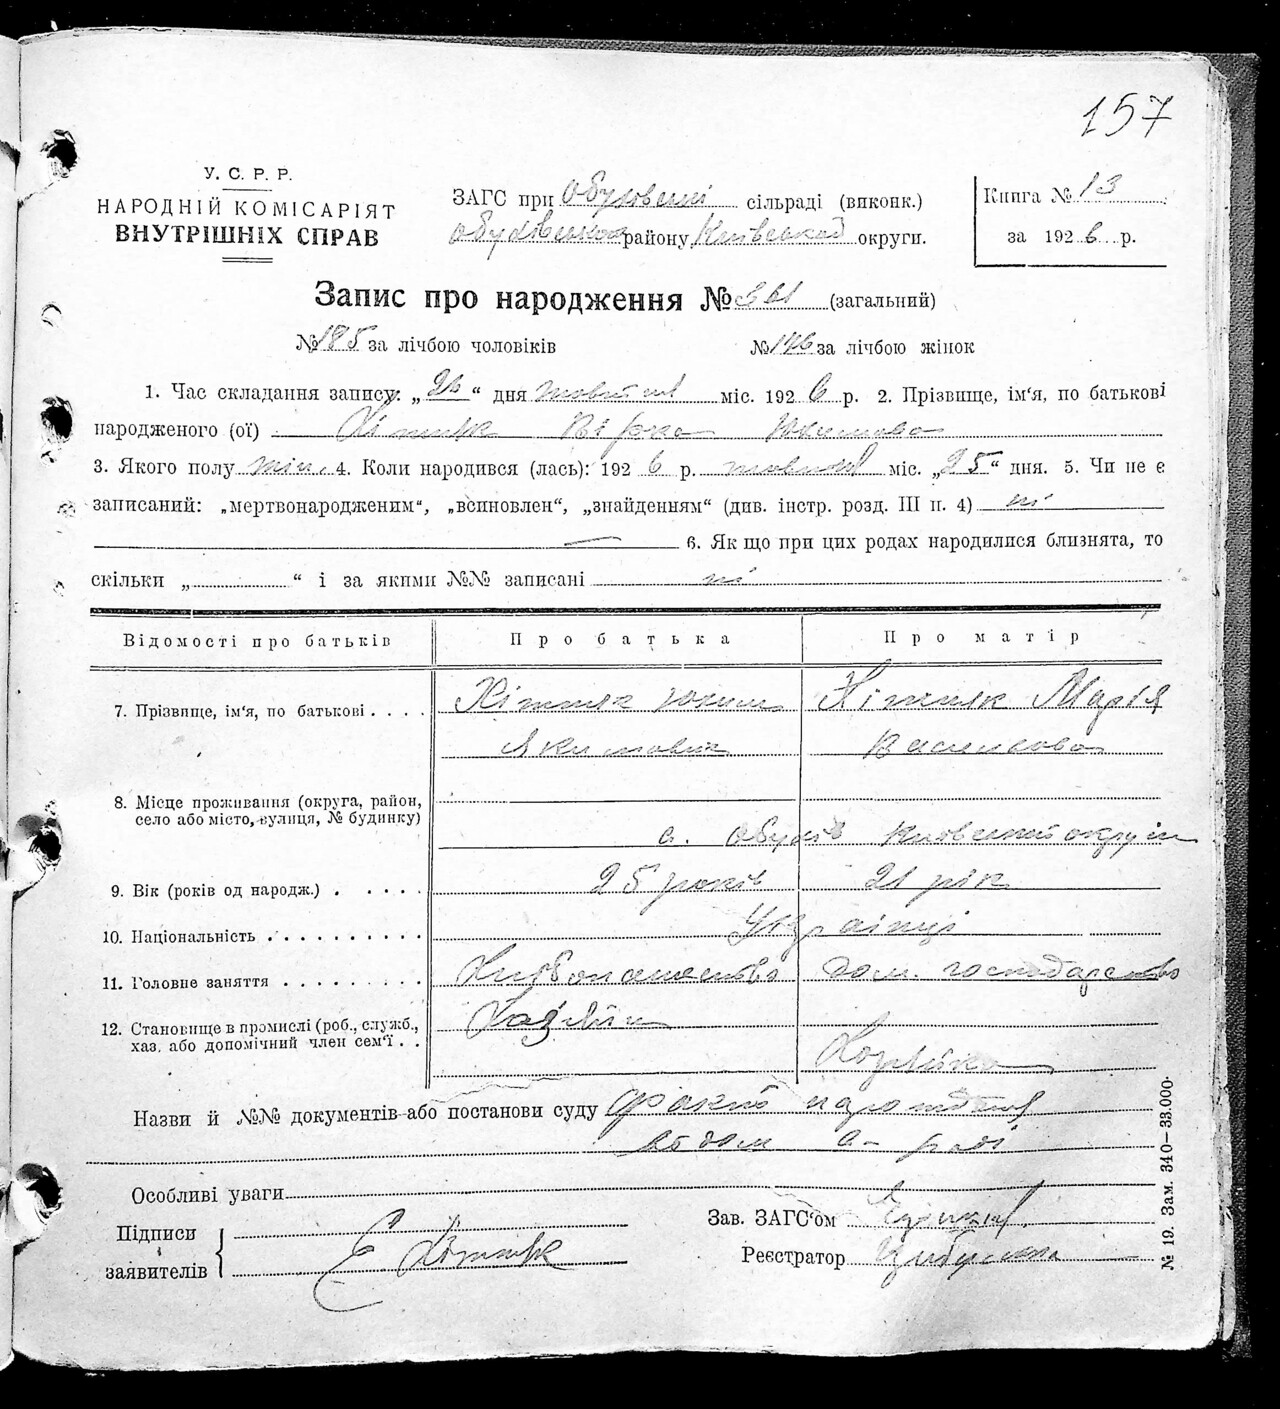 157
У. С. Р. Р.
НАРОДНІЙ КОМІСАРІЯТ
ВНУТРІШНІХ СПРАВ
ЗАГС при Обухівській сільраді (виконк.)
Обухівського району Київської округи.
Книга № 13
за 1926 р.
Запис про народження № (загальний)
№ 185 за лічбою чоловіків № 176 за лічбою жінок
1. Час складання запису: „26“ дня жовтня міс. 1926 р. 2. Прізвище, ім‘я, по батькові
народженого (ої) Хітник Якимова
3. Якого полу жін. 4. Коли народився (лась): 1926 р. жовтня міс. „25“ дня. 5. Чи не є
записаний: „мертвонародженим“, „всиновлен“, „знайденням“ (див. інстр. розд. III п. 4) ні
6. Як що при цих родах народилися близнята, то
скільки „ “ і за якими №№ записані ні
Відомості про батьків Про батька Про матір
7. Прізвище, ім‘я, по батькові . . . . Хітник Яким Хітник Марія
Якимович Василівна
8. Місце проживання (округа, район,
село або місто, вулиця, № будинку)
с. Обухів Київської округи
9. Вік (років од народж.) . . . . . 25 років 21 рік
10. Національність . . . . . . . . . . Українці
11. Головне заняття . . . . . . . . . Хліборобство дом. господарство
12. Становище в промислі (роб., служб.,
хаз. або допомічний член сем‘ї . . Хазяїн
Хазяйка
Назви й №№ документів або постанови суду
Особливі уваги
Підписи
заявителів
Хітник
Зав. ЗАГС‘ом
Реєстратор Цибулько
№ 19. Зам. 340—33.000.